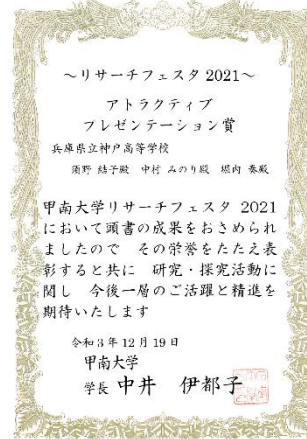 ～リサーチフェスタ 2021～
アトラクティブ
プレゼンテーション賞
兵庫県立神戸高等学校
須野 結子殿 中村 みのり殿 堀内 奏殿
甲南大学リサーチフェスタ 2021
において頭書の成果をおさめられ
ましたので その栄誉をたたえ表
彰すると共に 研究・探究活動に
関し 今後一層のご活躍と精進を
期待いたします
令和3年12月19日
甲南大学
学長 中井 伊都子